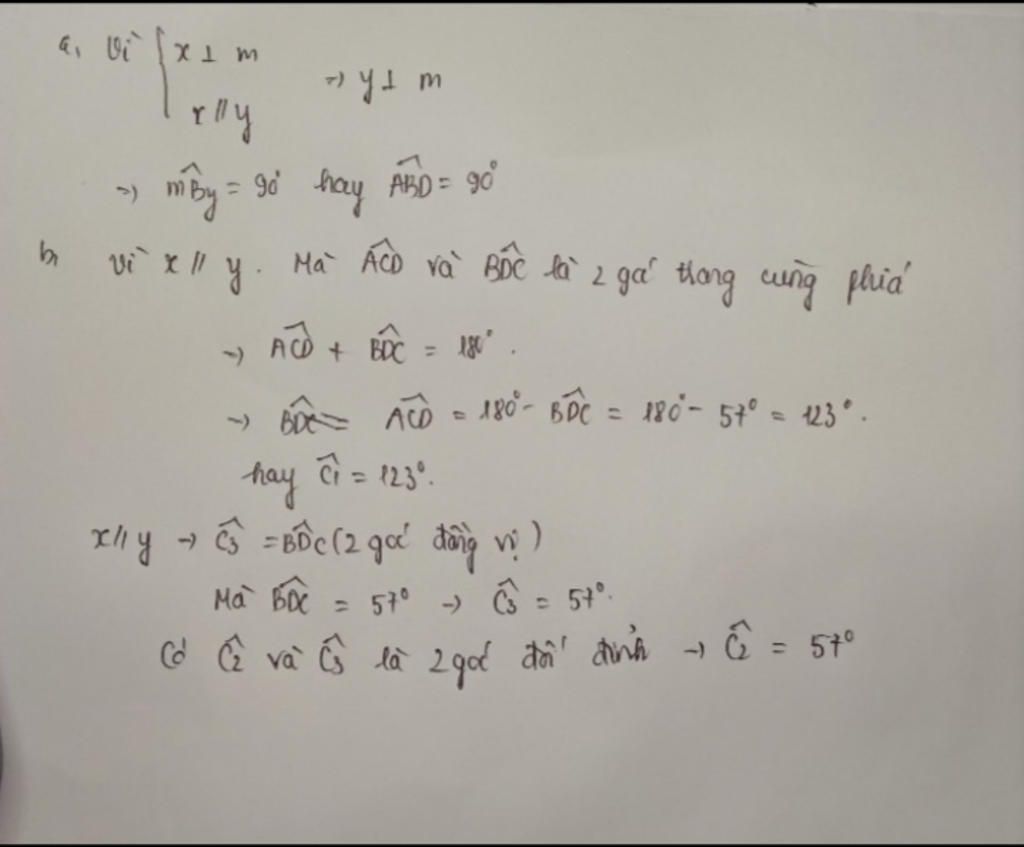 a, Vì { x ⊥ m
x // y
→ y ⊥ m
→ m̂By = 90° hay ÂBD = 90°
b, Vì x // y. Mà ÂCD và B̂DC là 2 góc trong cùng phía
→ ÂCD + B̂DC = 180°.
→ B̂DC = ÂCD = 180° - B̂DC = 180° - 57° = 123°.
hay Ĉ1 = 123°.
x // y → Ĉ3 = B̂DC (2 góc đồng vị)
Mà B̂DC = 57° → Ĉ3 = 57°.
Có Ĉ2 và Ĉ3 là 2 góc đối đỉnh → Ĉ2 = 57°